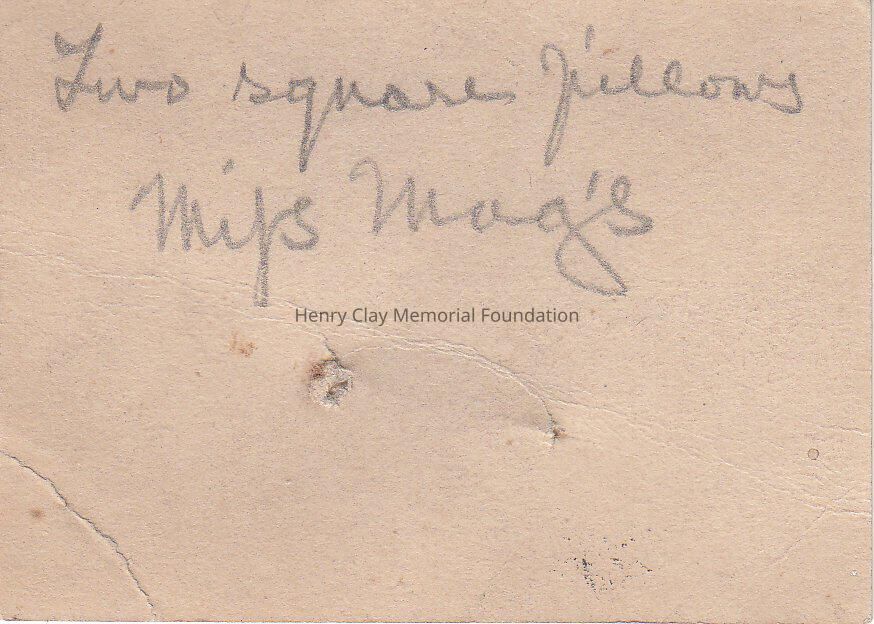 Two square pillows
Miss Mag's
Henry Clay Memorial Foundation